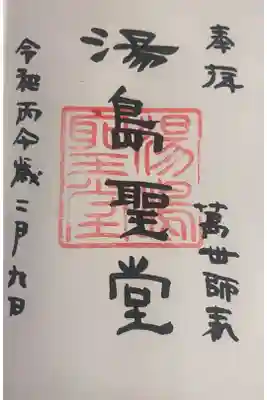 奉拝
萬世師表
湯島聖堂
湯島
聖堂
令和丙午歳二月九日